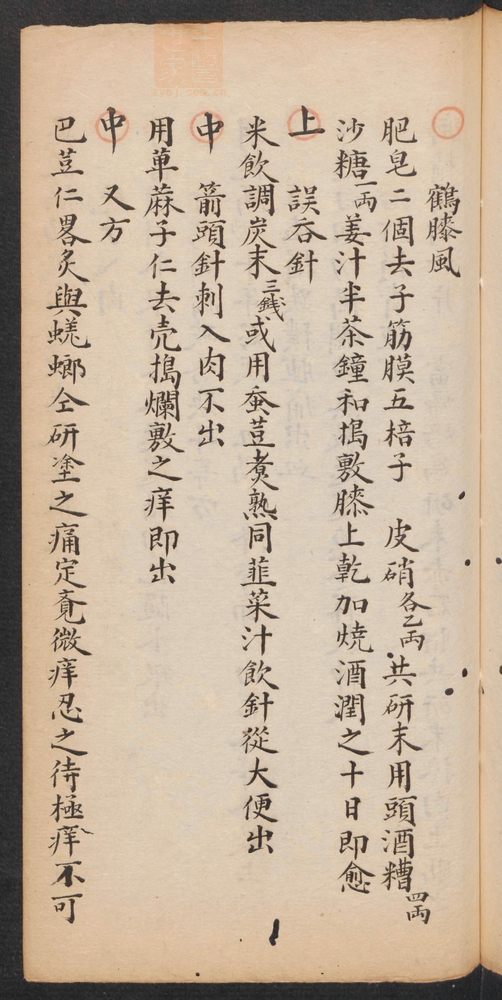 鶴膝風
肥皂二個去子筋膜五棓子　皮硝各乙両共研末用頭酒糟四両
沙糖一両姜汁半茶鐘和搗敷膝上乾加燒酒潤之十日即愈
上　誤吞針
米飲調炭末三錢或用蚕荳煮熟同韮菜汁飲針從大便出
中　箭頭針刺入肉不出
用萆蔴子仁去壳搗爛敷之痒即出
中　又方
巴荳仁畧炙與蜣螂仝研塗之痛定覔微痒忍之待極痒不可